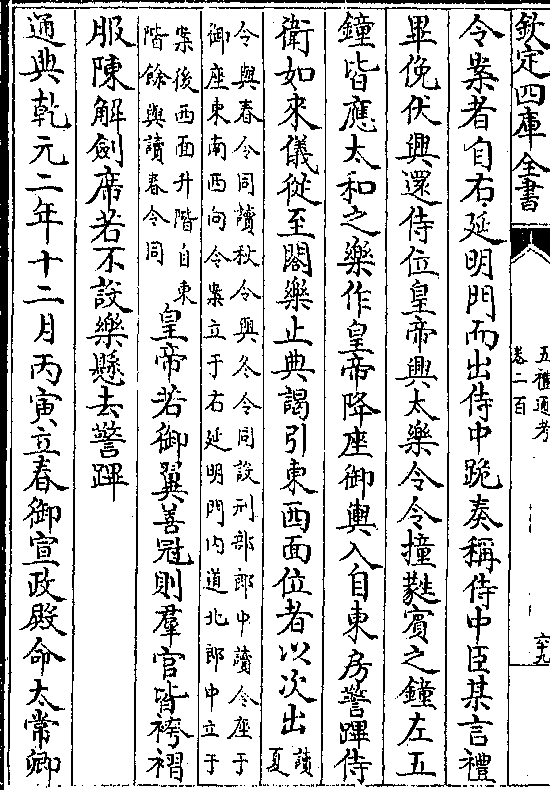 欽定四庫全書
五禮通考
卷二百
六十九
令案者自右延明門而出侍中跪奏稱侍中臣某言禮
畢俛伏興還侍位皇帝興太樂令令撞蕤賓之鐘左五
鐘皆應太和之樂作皇帝降座御輿入自東房警蹕侍
衛如來儀從至閤樂止典謁引東西面位者以次出
讀
夏
令與春令同讀秋令與冬令同設刑部郎中讀令座于
御座東南西向令案立于右延明門內道北郎中立于
案後西面升階自東
階餘與讀春令同
皇帝若御翼善冠則羣官皆袴褶
服陳解劍席若不設樂懸去警蹕
通典乾元二年十二月丙寅立春御宣政殿命太常卿